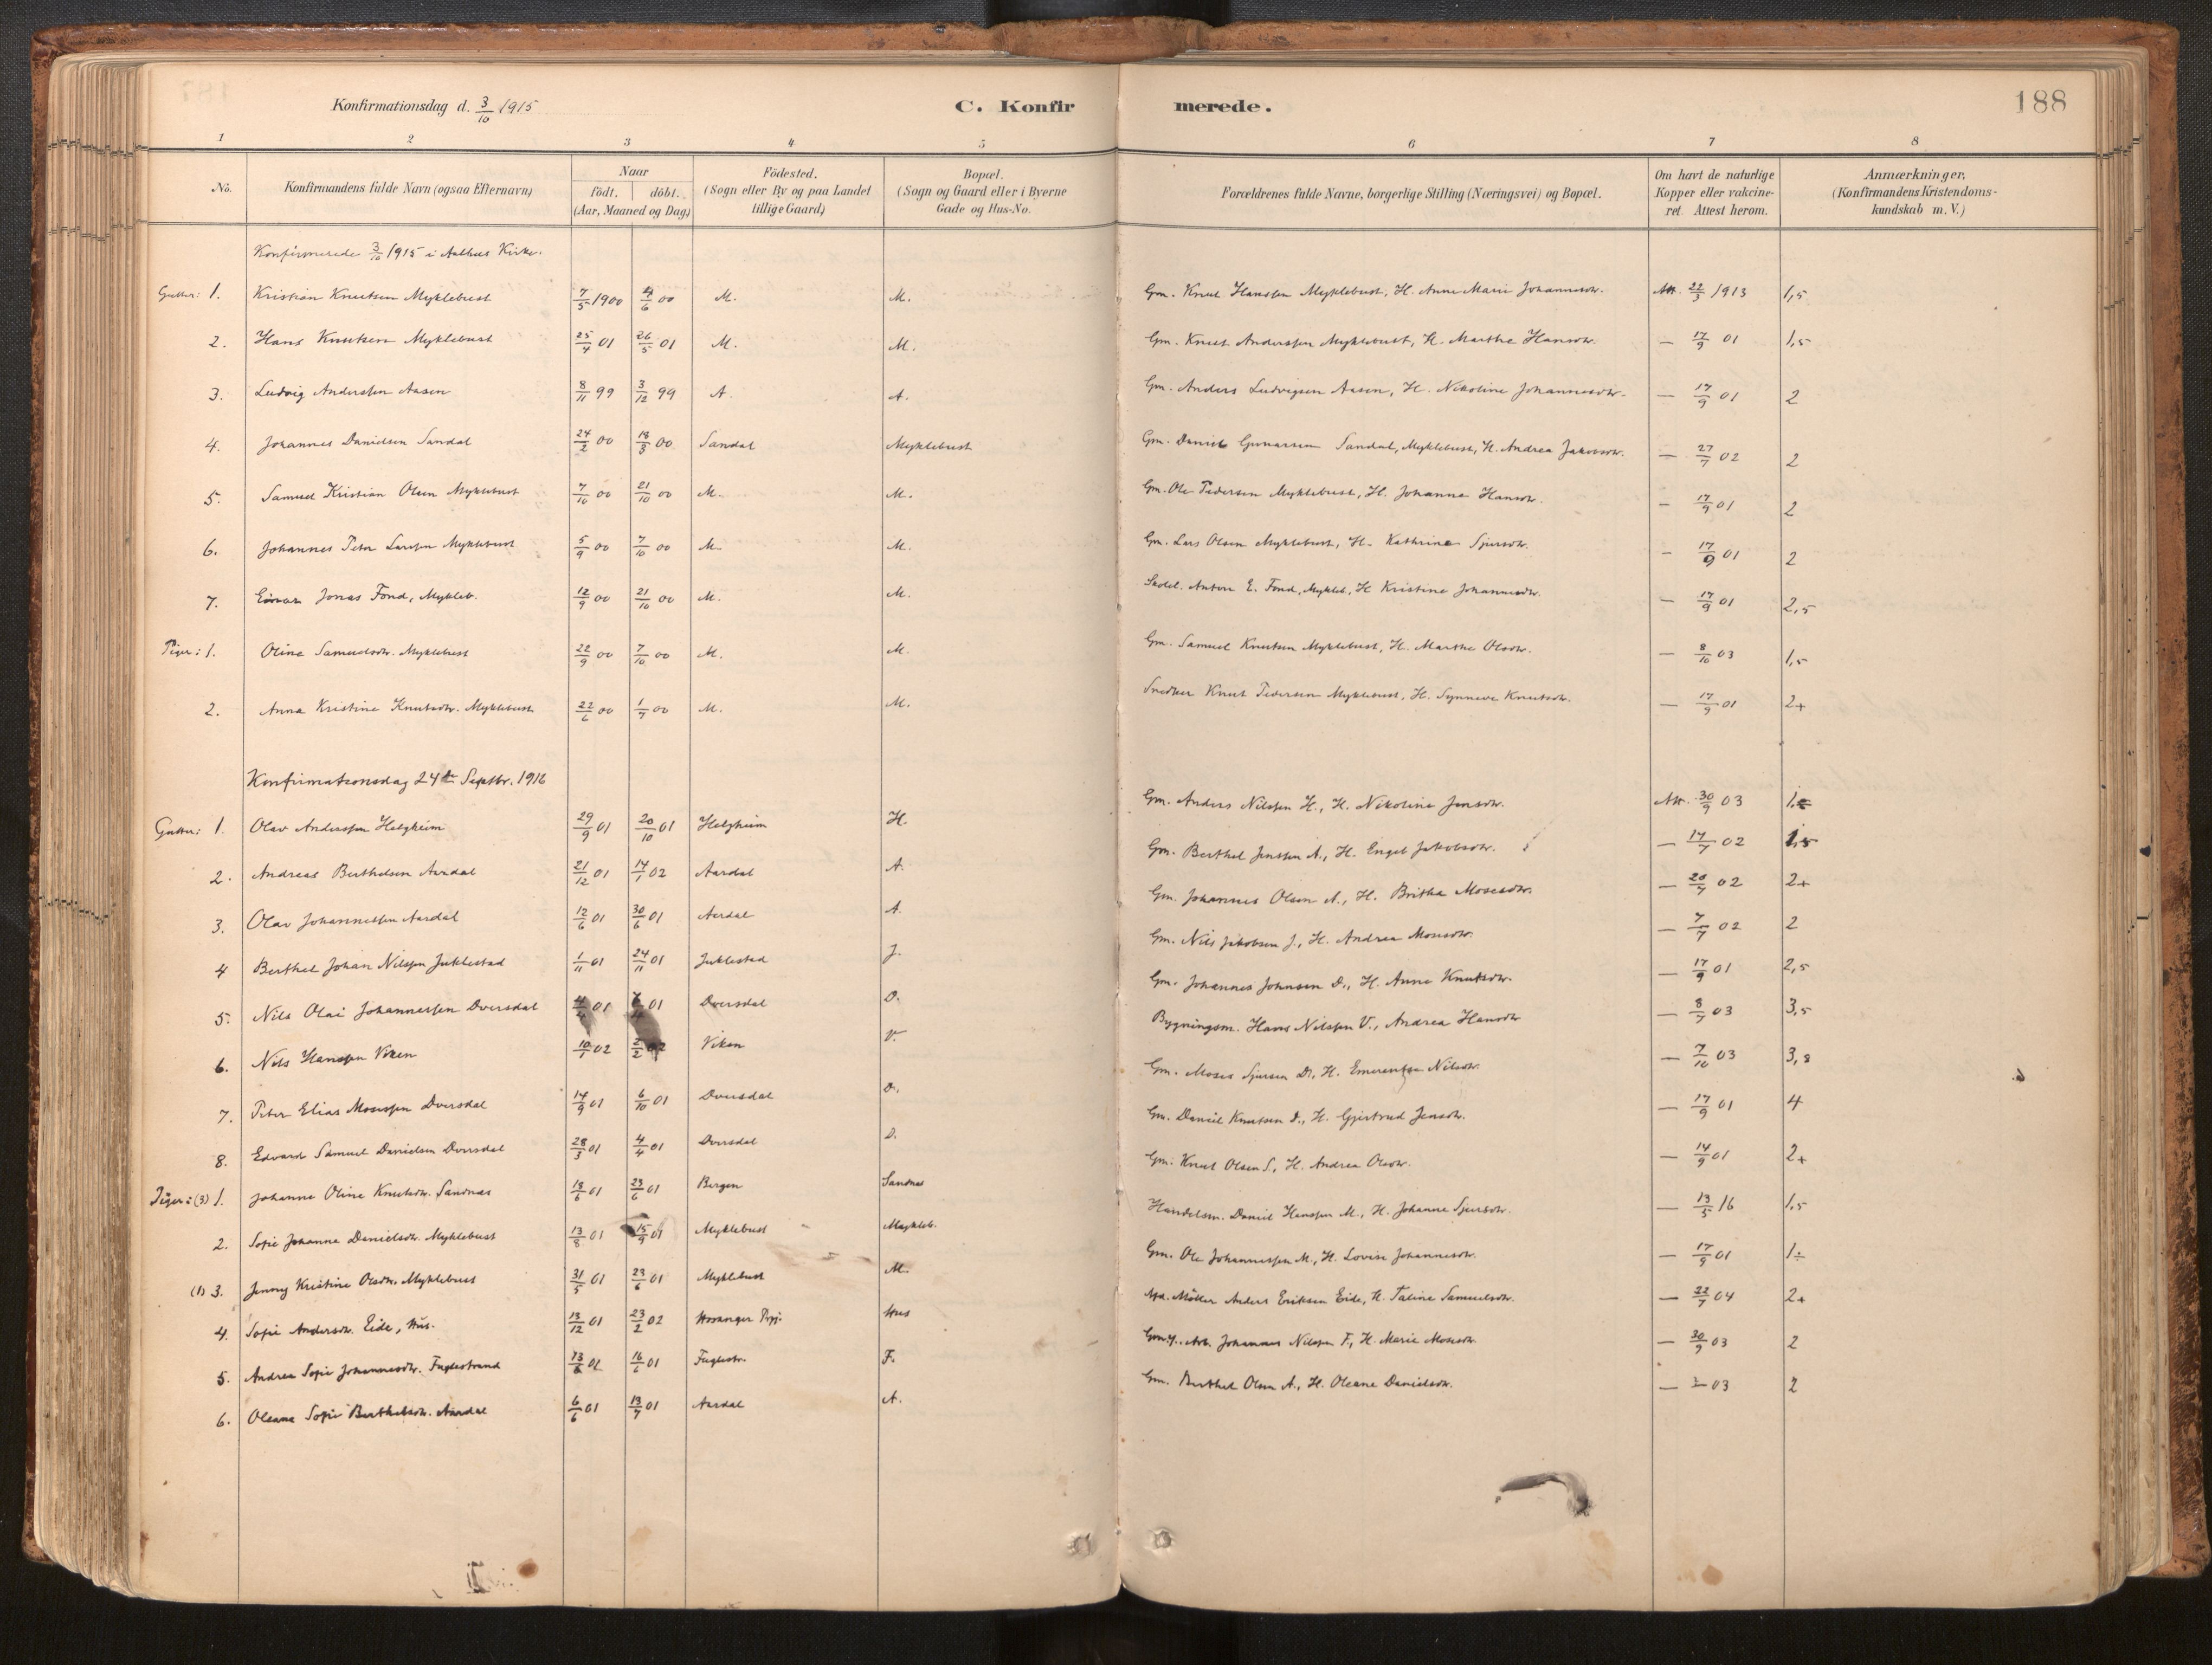 Konfirmationsdag d. 3/10 1915 C. Konfirmerede. 188
1 2 3 4 5 6 7 8
No. Konfirmandens fulde Navn (ogsaa Efternavn) Naar födt. döbt. (Aar, Maaned og Dag) Födested. (Sogn eller By og paa Landet tillige Gaard) Bopæl. (Sogn og Gaard eller i Byerne Gade og Hus-No. Forældrenes fulde Navne, borgerlige Stilling (Næringsvei) og Bopæl. Om havt de naturlige Kopper eller vakcineret. Attest herom. Anmærkninger, (Konfirmandens Kristendomskundskab m. V.)
Konfirmerede 3/10 1915 i Aalhus Kirke.
Gutter: 1. Kristian Knutsen Myklebust 7/5 1900 4/6 00 M. M. Gm. Knut Hanssen Myklebust, H. Anne Marie Johannesdtr. Att. 22/3 1913 1,5
2. Hans Knutsen Myklebust 25/4 01 26/5 01 M. M. Gm. Knut Anderssen Myklebust, H. Marthe Hansdtr. — 17/9 01 1,5
3. Ludvig Anderssen Aasen 8/11 99 3/12 99 A. A. Gm. Anders Ludvigsen Aasen, H. Nikoline Johannesdtr. — 17/9 01 2
4. Johannes Danielsen Sandal 24/2 00 18/3 00 Sandal Myklebust Gm. Daniel Gunnarsen Sandal, Myklebust, H. Andrea Jakobsdtr. — 27/7 02 2
5. Samuel Kristian Olsen Myklebust 7/10 00 21/10 00 M. M. Gm. Ole Pedersen Myklebust, H. Johanne Hansdtr. — 17/9 01 2
6. Johannes Peter Larssen Myklebust 5/9 00 7/10 00 M. M. Gm. Lars Olsen Myklebust, H. Kathrine Sjursdtr. — 17/9 01 2
7. Einar Jonas Fond, Mykleb. 12/9 00 21/10 00 M. M. Skolel. Anton E. Fond, Mykleb., H. Kristine Johannesdtr. — 17/9 01 2,5
Piger: 1. Oline Samuelsdtr. Myklebust 22/9 00 7/10 00 M. M. Gm. Samuel Knutsen Myklebust, H. Marthe Olsdtr. — 8/10 03 1,5
2. Anna Kristine Knutsdtr. Myklebust 22/6 00 1/7 00 M. M. Snedker Knut Pedersen Myklebust, H. Synneve Knutsdtr. — 17/9 01 2+
Konfirmationsdag 24de Septbr. 1916
Gutter: 1. Olav Anderssen Helgheim 29/9 01 20/10 01 Helgheim H. Gm. Anders Nilssen H., H. Nikoline Jensdtr. Att. 30/9 03
2. Andreas Berthelsen Aardal 21/12 01 14/1 02 Aardal A. Gm. Berthel Jenssen A., H. Engel Jakobsdtr. — 17/7 02 1,5
3. Olav Johannessen Aardal 12/6 01 30/6 01 Aardal A. Gm. Johannes Olsen A., H. Britha Mosesdtr. — 20/7 02 2+
4 Berthel Johan Nilssen Juklestad 1/11 01 24/11 01 Juklestad J. Gm. Nils Jakobsen J., H. Andrea Mosesdtr. — 7/7 02 2
5. Nils Olai Johannessen Dversdal 01 01 Dversdal D. Gm. Johannes Johnsen D., H. Anne Knutsdtr. — 17/9 01 2,5
6. Nils Hanssen Viken 10/1 02 2/2 02 Viken V. Bygningsm. Hans Nilssen V., Andrea Hansdtr — 8/7 03 3,5
7. Peter Elias Mosessen Dversdal 14/9 01 6/10 01 Dversdal D. Gm. Moses Sjursen D., H. Emerentse Nilsdtr. — 7/10 03 3,8
8. Edvard Samuel Danielsen Dversdal 28/3 01 4/4 01 Dversdal D. Gm. Daniel Knutsen D., H. Gjertrud Jensdtr. — 17/9 01 4
Piger: (3) 1. Johanne Oline Knutsdtr. Sandnæs 13/6 01 23/6 01 Bergen Sandnes Gm. Knut Olsen S., H. Andrea Olsdtr. — 14/9 01 2+
2. Sofie Johanna Danielsdtr. Myklebust 13/8 01 15/9 01 Myklebust Mykleb. Handelsm. Daniel Hanssen M., H. Johanne Sjursdtr. — 13/5 16 1,5
(1) 3. Jenny Kristine Olsdtr. Myklebust 31/5 01 23/6 01 Myklebust M. Gm. Ole Johannessen M., H. Lovise Johannesdtr. — 17/9 01 1÷
4. Sofie Andersdtr. Eide, Hus. 13/12 01 23/2 02 Hosanger Prgj. Hus Møller Anders Eriksen Eide, H. Taline Samuelsdtr. — 22/7 04 2+
5. Andrea Sofie Johannesdtr. Fuglestrand 16/6 01 Fuglestr. F. Arb. Johannes Nilssen F., H. Marie Mosesdtr. — 30/9 03 2
6. Oleana Sofie Berthelsdtr. Aardal 6/6 01 13/7 01 Aardal A. Gm. Berthel Olsen A., H. Oleane Danielsdtr. — 03 2